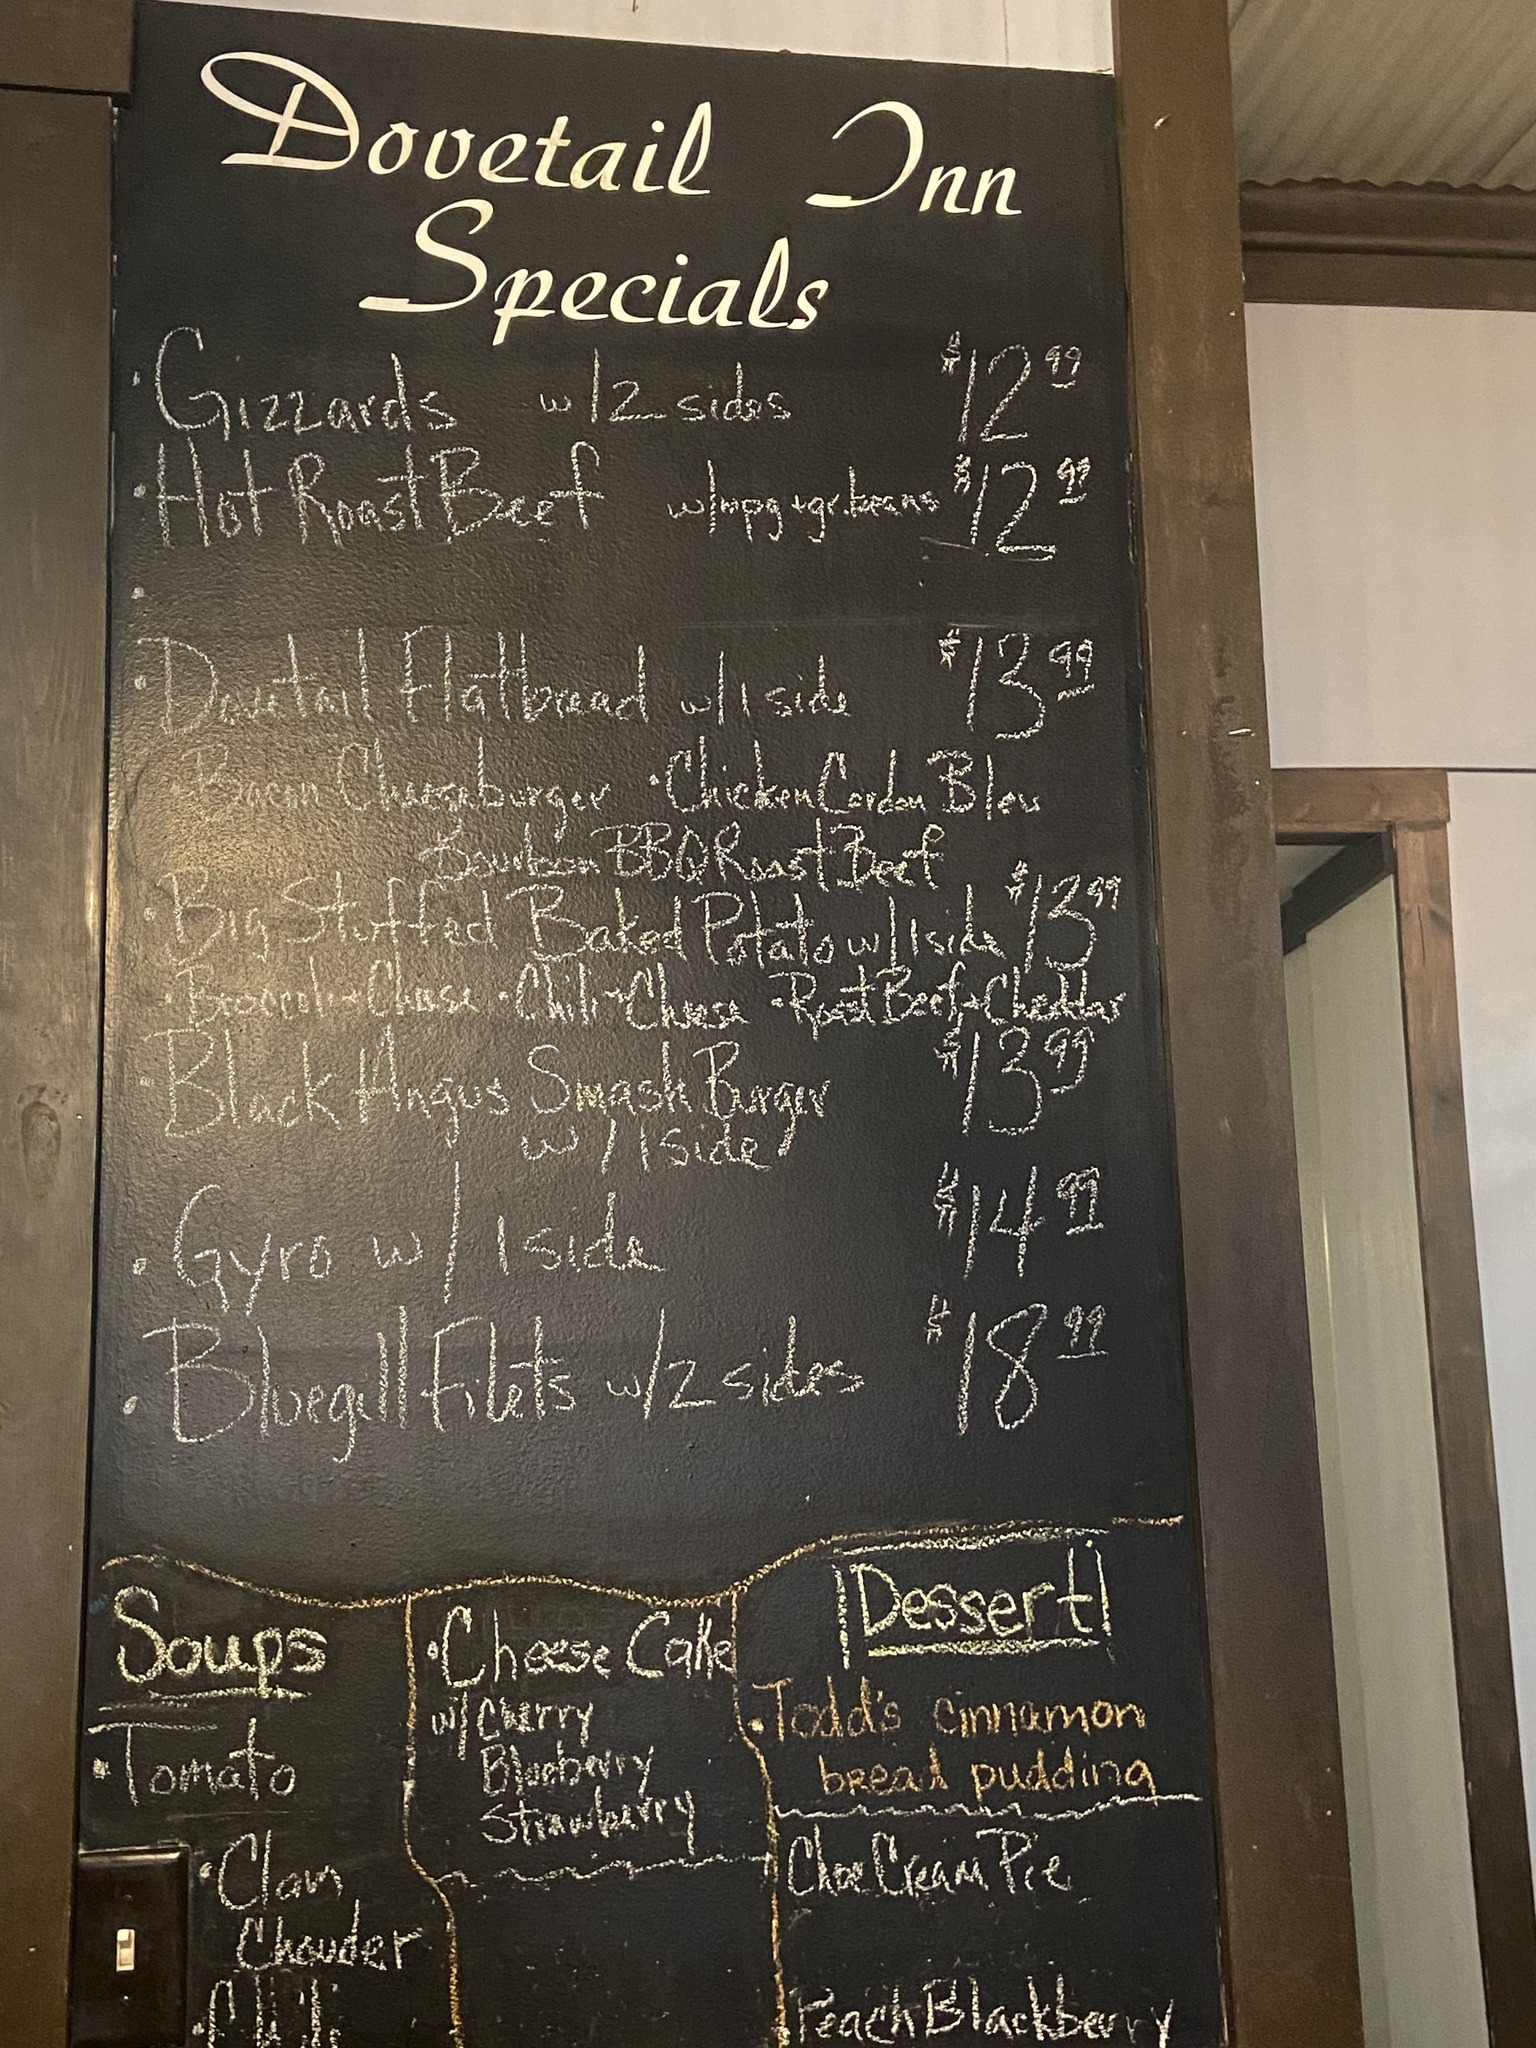 Dovetail Inn
Specials
• Gizzards w/2 sides $12.99
• Hot Roast Beef w/mpg + gr. beans $12.99
•
• Dovetail Flatbread w/1 side $13.99
Bacon Cheeseburger • Chicken Cordon Bleu
Bourbon BBQ Roast Beef
• Big Stuffed Baked Potato w/1 side $13.99
• Broccoli + Cheese • Chili + Cheese • Roast Beef + Cheddar
• Black Angus Smash Burger $13.99
w/1 side
• Gyro w/1 side $14.99
• Bluegill Filets w/2 sides $18.99
Soups
• Tomato
• Clam
Chowder
• Chili
• Cheese Cake
w/ Cherry
Blueberry
Strawberry
Dessert
• Todd's cinnamon
bread pudding
Choc Cream Pie
Peach Blackberry